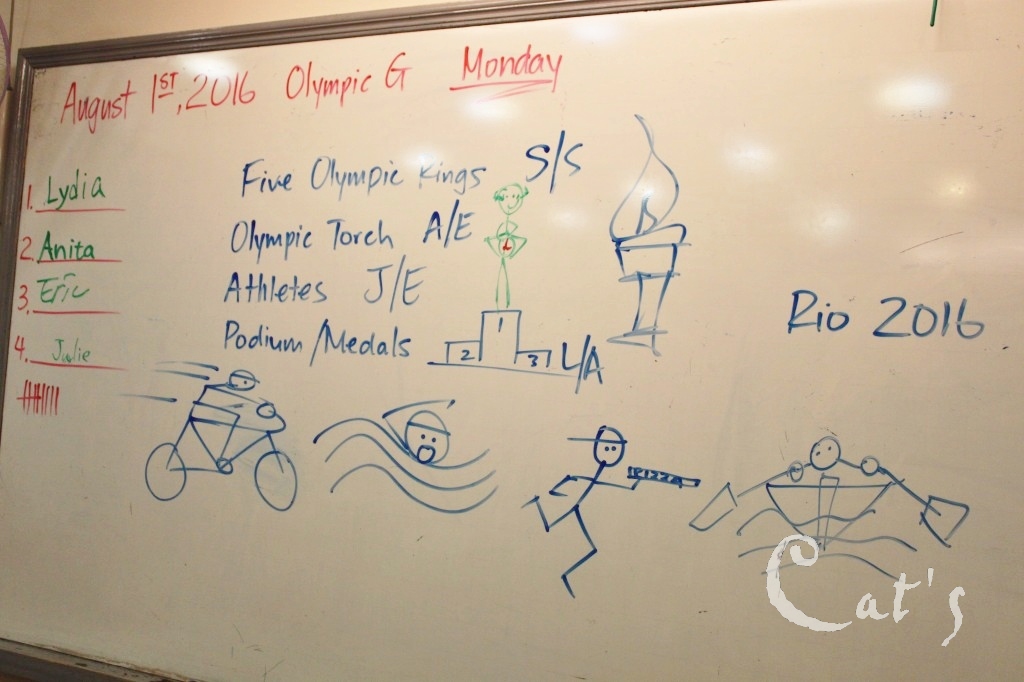 August 1ST, 2016 Olympic G Monday
1. Lydia
2. Anita
3. Eric
4. Julie
Five Olympic Rings S/S
Olympic Torch A/E
Athletes J/E
Podium/Medals L/A
1
2 3
Rio 2016
PIZZA
Cat's